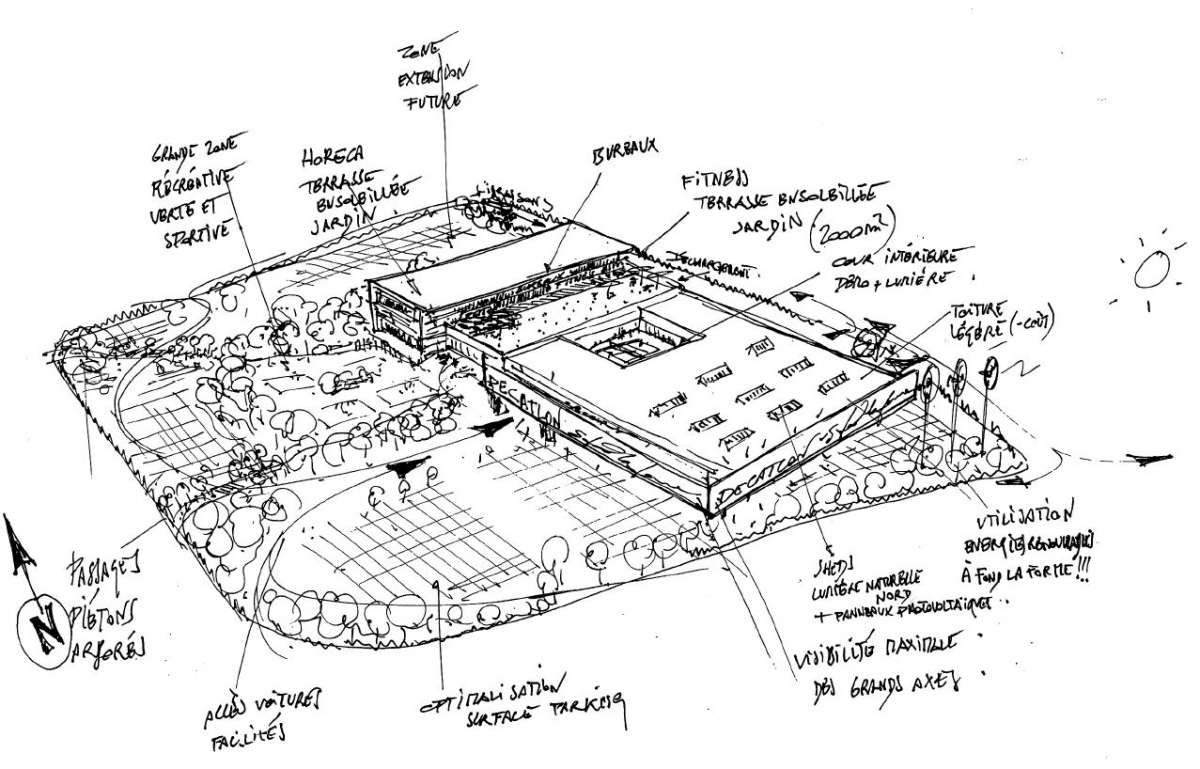 ZONE
EXTENSION
FUTURE
GRANDE ZONE
RÉCRÉATIVE
VERTE ET
SPORTIVE
HORECA
TERRASSE
ENSOLEILLÉE
JARDIN
BUREAUX
FITNESS
TERRASSE ENSOLEILLÉE
JARDIN (2000 m²)
COUR INTÉRIEURE
DÉMO + LUMIÈRE
LIVRAISONS
TOITURE
LÉGÈRE (-COÛT)
DECATLON
DECATLON
UTILISATION
ENERGIES RENOUVLABLES
À FOND LA FORME !!!
SHEDS
LUMIÈRE NATURELLE
NORD
+ PANNEAUX PHOTOVOLTAÏQUES.
VISIBILITÉ MAXIMALE
DES GRANDS AXES.
OPTIMALISATION
SURFACE PARKING
ACCÈS VOITURES
FACILITÉS
PASSAGES
PIÉTONS
ARBORÉS
N